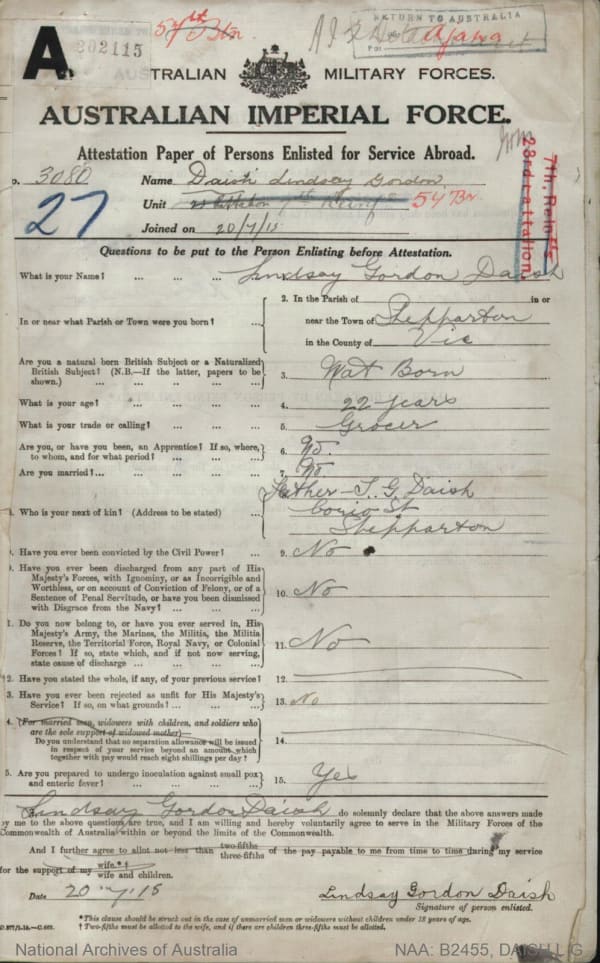 A
202115
57th Bn.
RETURN TO AUSTRALIA
Per
AUSTRALIAN MILITARY FORCES.
AUSTRALIAN IMPERIAL FORCE.
Attestation Paper of Persons Enlisted for Service Abroad.
o. 3080 Name Daish Lindsay Gordon
27 Unit 7th Reinf 54 Bn
Joined on 20/7/15
7th, Reinf's
23rd Battalion.
Questions to be put to the Person Enlisting before Attestation.
What is your Name? ... ... ... Lindsay Gordon Daish
In or near what Parish or Town were you born? ...
2. In the Parish of in or
near the Town of Shepparton
in the County of Vic
Are you a natural born British Subject or a Naturalized
British Subject? (N.B.—If the latter, papers to be
shown.) ... ... ... ...
3. Nat Born
What is your age? ... ... ... 4. 22 years
What is your trade or calling? ... ... 5. Grocer
Are you, or have you been, an Apprentice? If so, where,
to whom, and for what period? ... ... 6. No.
Are you married?... ... ... ... 7. No
Father - T. G. Daish
. Who is your next of kin? (Address to be stated) ... Corio St
Shepparton
. Have you ever been convicted by the Civil Power? ... 9. No
. Have you ever been discharged from any part of His
Majesty's Forces, with Ignominy, or as Incorrigible and
Worthless, or on account of Conviction of Felony, or of a
Sentence of Penal Servitude, or have you been dismissed
with Disgrace from the Navy? ... ... ...
10. No
1. Do you now belong to, or have you ever served in, His
Majesty's Army, the Marines, the Militia, the Militia
Reserve, the Territorial Force, Royal Navy, or Colonial
Forces? If so, state which, and if not now serving,
state cause of discharge ... ... ... ...
11. No
12. Have you stated the whole, if any, of your previous service? 12.
3. Have you ever been rejected as unfit for His Majesty's
Service? If so, on what grounds? ... ... ... 13. No
4. (For married men, widowers with children, and soldiers who
are the sole support of widowed mother)—
Do you understand that no separation allowance will be issued
in respect of your service beyond an amount which
together with pay would reach eight shillings per day?
14.
5. Are you prepared to undergo inoculation against small pox
and enteric fever? ... ... ... ... 15. Yes
Lindsay Gordon Daish do solemnly declare that the above answers made
by me to the above questions are true, and I am willing and hereby voluntarily agree to serve in the Military Forces of the
Commonwealth of Australia within or beyond the limits of the Commonwealth.
And I further agree to allot not less than two-fifths three-fifths of the pay payable to me from time to time during my service
for the support of my wife.*† wife and children.
Date 20/7/15 Lindsay Gordon Daish
Signature of person enlisted.
*This clause should be struck out in the case of unmarried men or widowers without children under 18 years of age.
† Two-fifths must be allotted to the wife, and if there are children three-fifths must be allotted.
National Archives of Australia NAA: B2455, DAISH L G